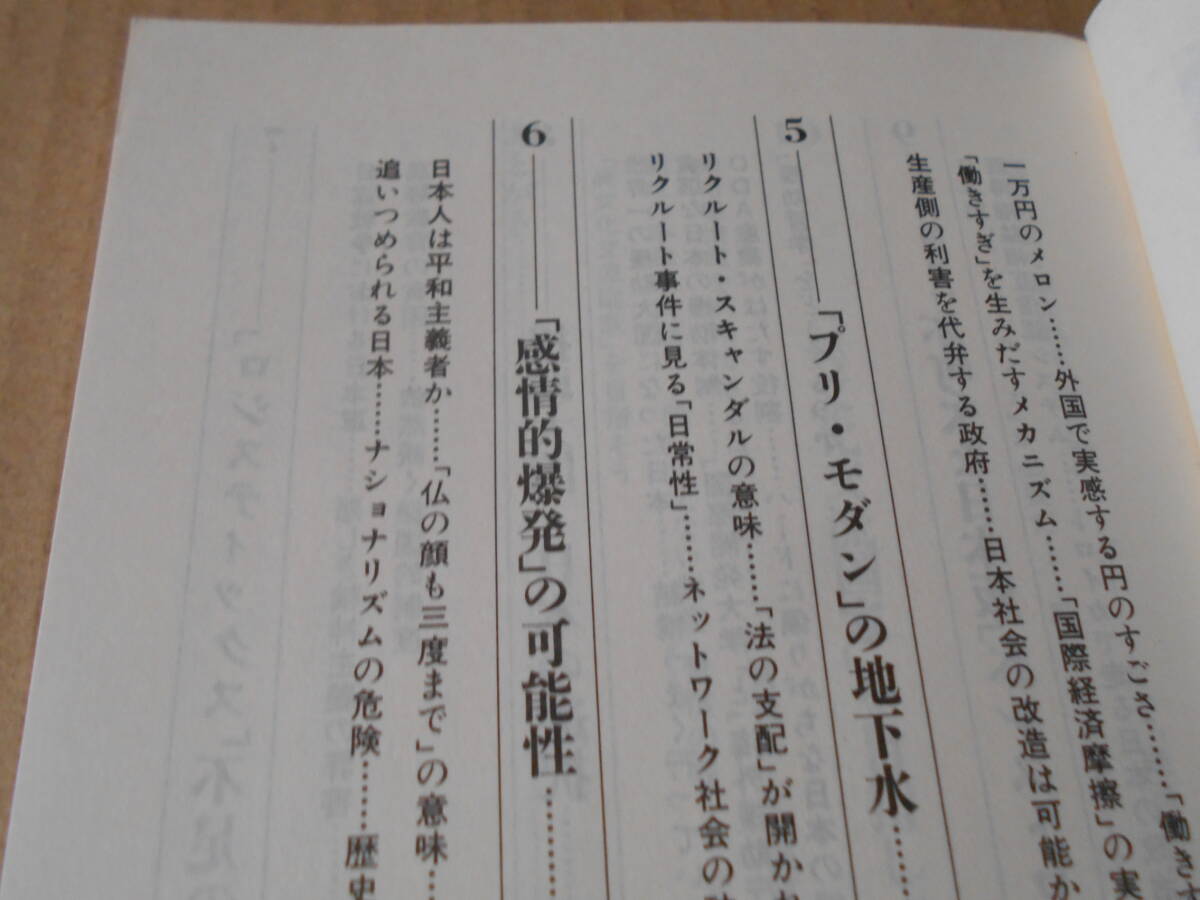 一万円のメロン……外国で実感する円のすごさ……「働きす
「働きすぎ」を生みだすメカニズム……「国際経済摩擦」の実
生産側の利害を代弁する政府……日本社会の改造は可能か
5――「プリ・モダン」の地下水……
リクルート・スキャンダルの意味……「法の支配」が開か
リクルート事件に見る「日常性」……ネットワーク社会の
6――「感情的爆発」の可能性……
日本人は平和主義者か……「仏の顔も三度まで」の意味……
追いつめられる日本……ナショナリズムの危険……歴史